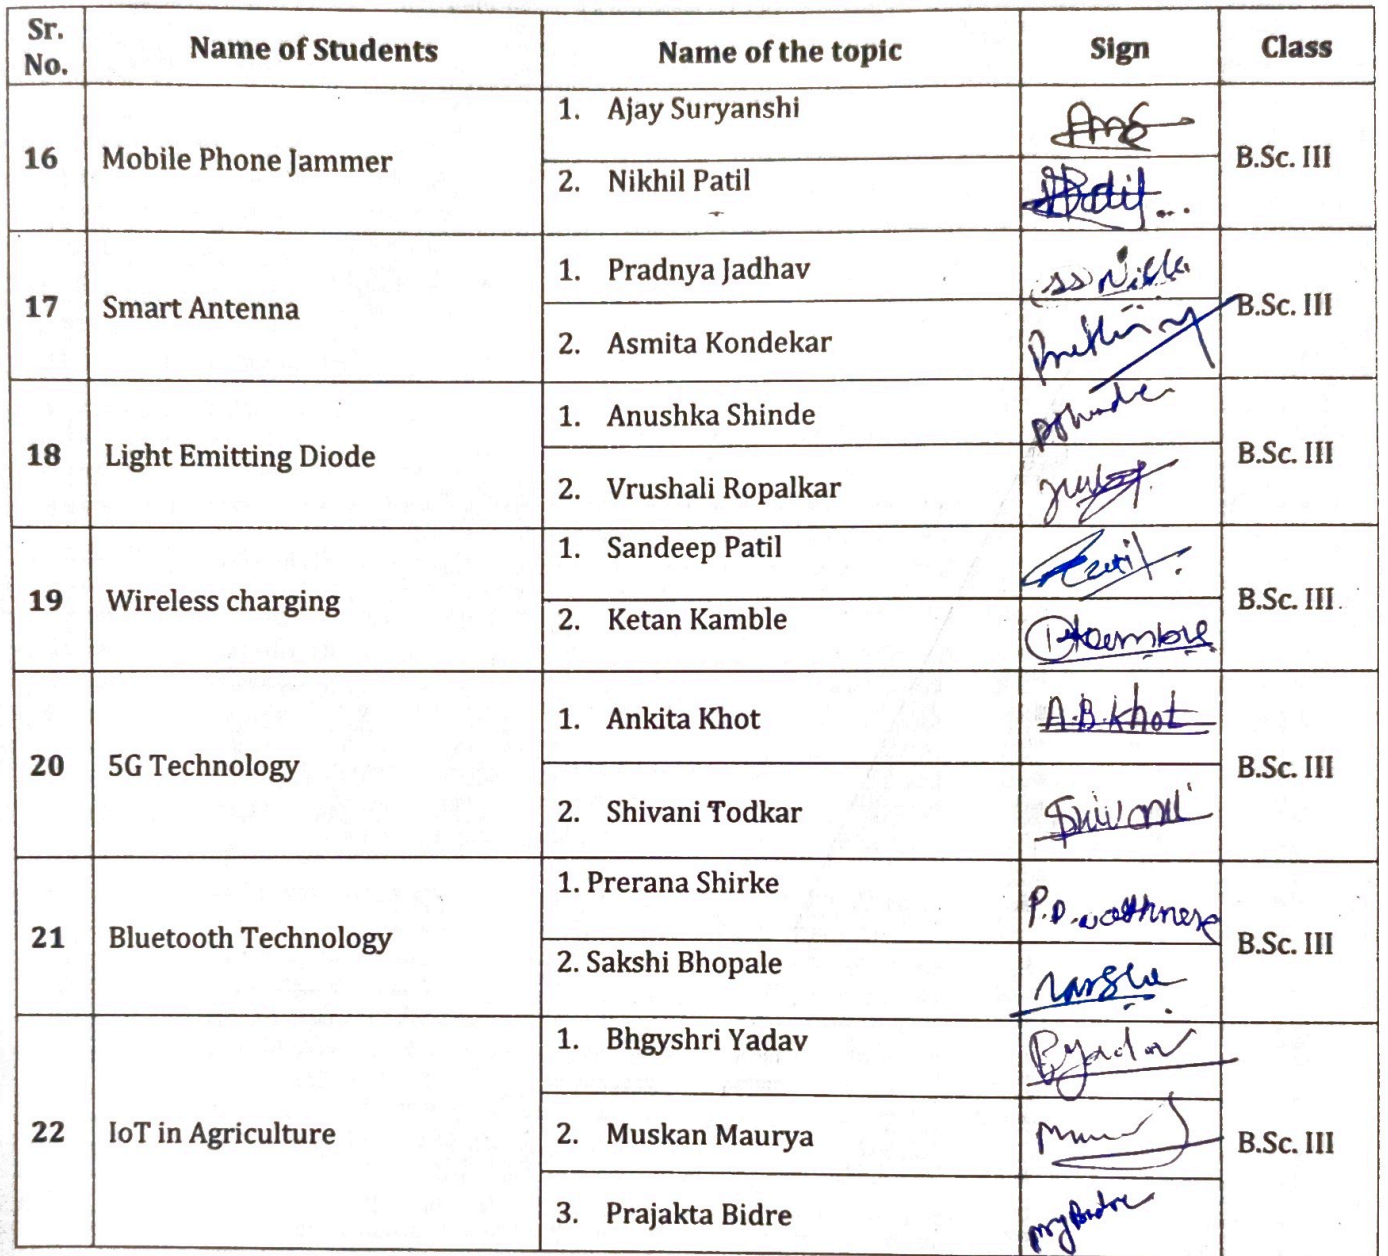 Sr. No. Name of Students Name of the topic Sign Class
16 Mobile Phone Jammer 1. Ajay Suryanshi B.Sc. III
2. Nikhil Patil
17 Smart Antenna 1. Pradnya Jadhav B.Sc. III
2. Asmita Kondekar
18 Light Emitting Diode 1. Anushka Shinde B.Sc. III
2. Vrushali Ropalkar
19 Wireless charging 1. Sandeep Patil B.Sc. III
2. Ketan Kamble
20 5G Technology 1. Ankita Khot A.B.Khot B.Sc. III
2. Shivani Todkar Shivani
21 Bluetooth Technology 1. Prerana Shirke B.Sc. III
2. Sakshi Bhopale
22 IoT in Agriculture 1. Bhgyshri Yadav BYadav B.Sc. III
2. Muskan Maurya
3. Prajakta Bidre